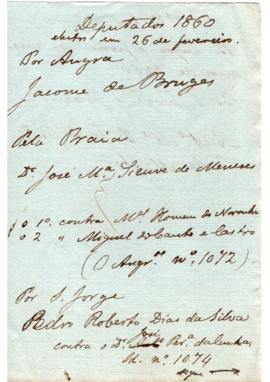 Deputados 1860
eleitos em 26 de fevereiro.
Por Angra
Jacome de Bruges
Pela Praia
Dr. José Mª Sieuve de Meneses
o 1º contra Mel. Homem de Noronha
o 2 " Miguel do Canto e Castro
(O Angr. nº 1072)
Por S. Jorge
Pedro Roberto Dias da Silva
contra o Dr. José Perª da Cunha
Id. nº 1074
segue